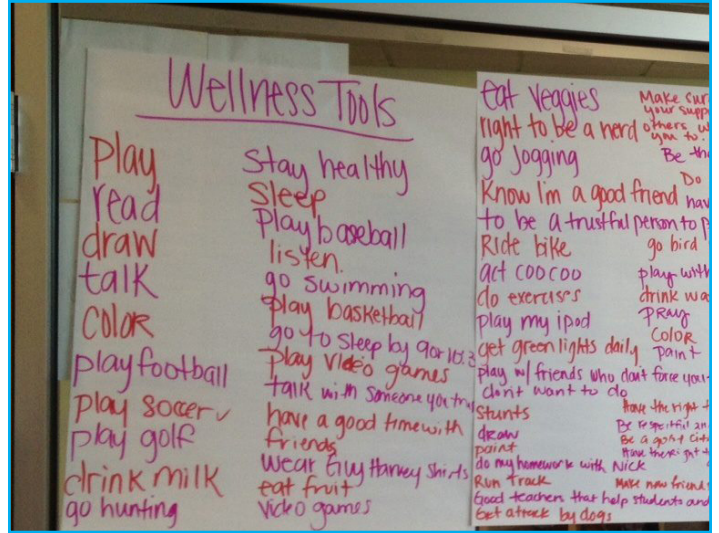 Wellness Tools
Play
read
draw
talk
color
play football
play soccer ✓
play golf
drink milk
go hunting
Stay healthy
Sleep
Play baseball
listen.
go swimming
play basketball
go to sleep by 9 or 10:3
play video games
talk with someone you
have a good time with
friends
Wear Guy Harvey Shirts
eat fruit
video games
eat veggies
right to be a nerd
go jogging
Know I'm a good friend
to be a trustful person to
Ride bike
act coocoo
do exercises
play my ipod
get green lights daily
play w/ friends who don't force you
don't want to do
Stunts
draw
paint
do my homework with Nick
Run track
Good teachers that help students and
Get attack by dogs
Make sure
your
others
you to
Be
Do
go bird
play with
drink
pray
Color
paint
Have the right
Be respectful
Be a good
Have the right
Make new friend